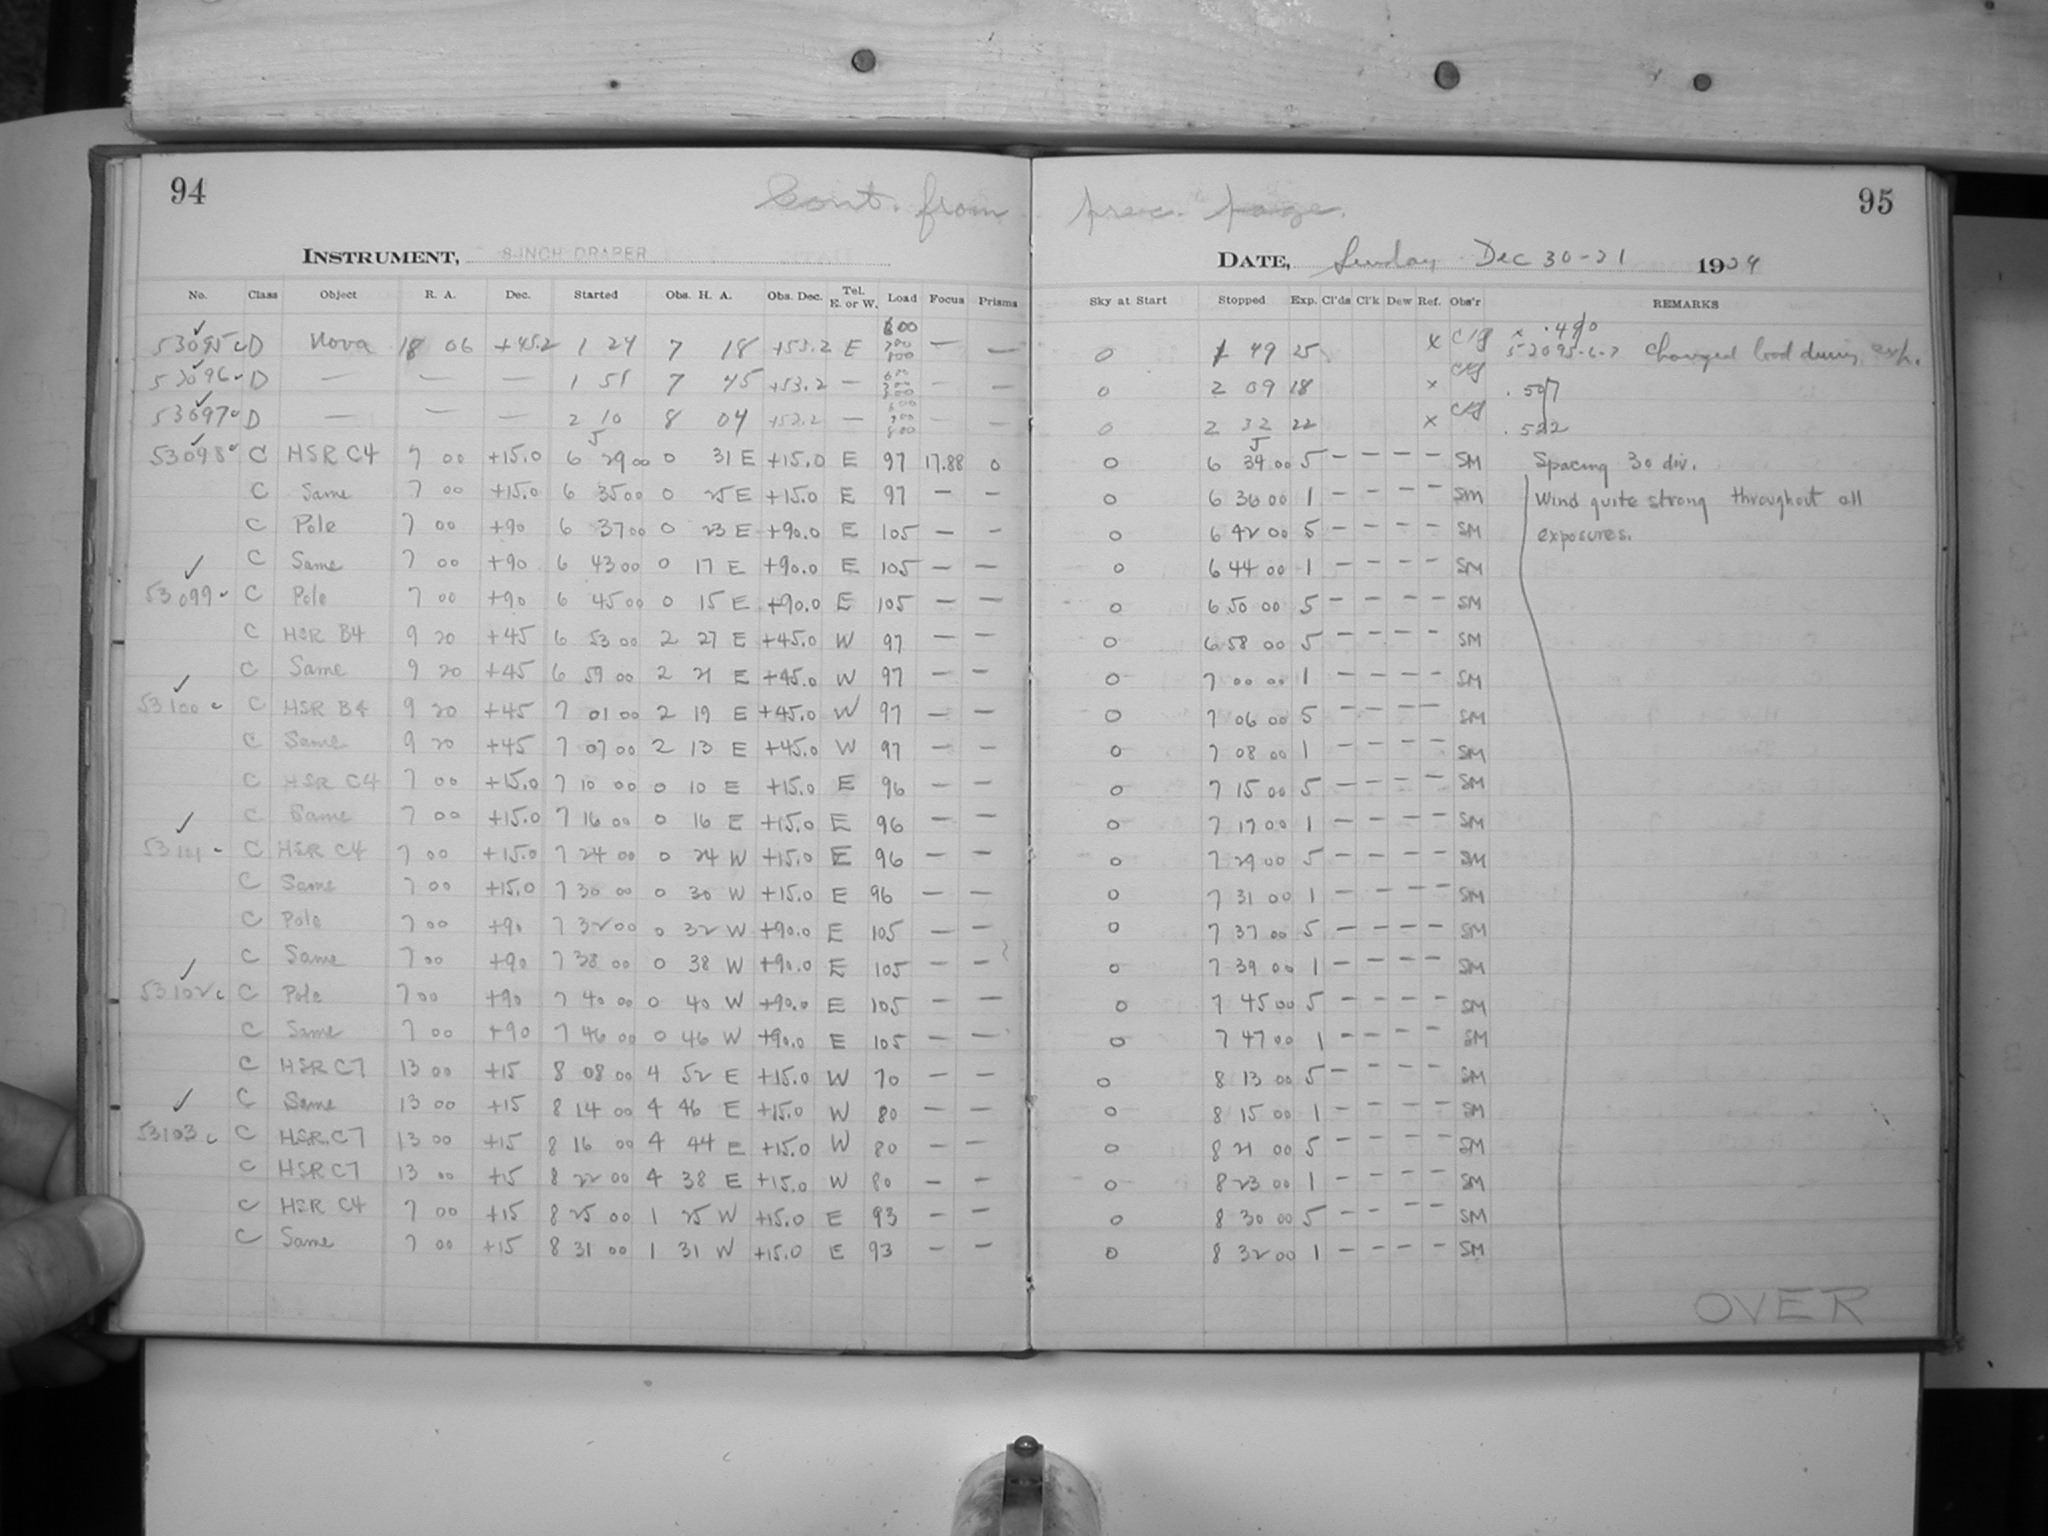 94 Cont. from prec. page. 95
INSTRUMENT, 8-INCH DRAPER DATE, Sunday Dec 30-21 1934
No. Class Object R. A. Dec. Started Obs. H. A. Obs. Dec. Tel. E. or W. Load Focus Prisms Sky at Start Stopped Exp. Cl'ds Cl'k Dew Ref. Obs'r REMARKS
53095 c D Nova 18 06 +45.2 1 24 7 18 +53.2 E 600 700 800 — — 0 1 49 25 x .490 Changed load during exp.
53096 D — — — 1 51 7 45 +53.2 — — — 0 2 09 18 x .507
53097 D — — — 2 10 8 04 +53.2 — — — 0 2 32 22 x .522
53098 C HSR C4 7 00 +15.0 6 29 00 0 31 E +15.0 E 97 17.88 0 0 6 34 00 5 — — — — SM Spacing 30 div.
C Same 7 00 +15.0 6 35 00 0 25 E +15.0 E 97 — — 0 6 36 00 1 — — — — SM Wind quite strong throughout all
C Pole 7 00 +90 6 37 00 0 23 E +90.0 E 105 — — 0 6 42 00 5 — — — — SM exposures.
C Same 7 00 +90 6 43 00 0 17 E +90.0 E 105 — — 0 6 44 00 1 — — — — SM
53099 C Pole 7 00 +90 6 45 00 0 15 E +90.0 E 105 — — 0 6 50 00 5 — — — — SM
C HSR B4 9 20 +45 6 53 00 2 27 E +45.0 W 97 — — 0 6 58 00 5 — — — — SM
C Same 9 20 +45 6 59 00 2 21 E +45.0 W 97 — — 0 7 00 00 1 — — — — SM
53100 c C HSR B4 9 20 +45 7 01 00 2 19 E +45.0 W 97 — — 0 7 06 00 5 — — — — SM
C Same 9 20 +45 7 07 00 2 13 E +45.0 W 97 — — 0 7 08 00 1 — — — — SM
C HSR C4 7 00 +15.0 7 10 00 0 10 E +15.0 E 96 — — 0 7 15 00 5 — — — — SM
C Same 7 00 +15.0 7 16 00 0 16 E +15.0 E 96 — — 0 7 17 00 1 — — — — SM
53101 C HSR C4 7 00 +15.0 7 24 00 0 24 W +15.0 E 96 — — 0 7 29 00 5 — — — — SM
C Same 7 00 +15.0 7 30 00 0 30 W +15.0 E 96 — — 0 7 31 00 1 — — — — SM
C Pole 7 00 +90 7 32 00 0 32 W +90.0 E 105 — — 0 7 37 00 5 — — — — SM
C Same 7 00 +90 7 38 00 0 38 W +90.0 E 105 — — 0 7 39 00 1 — — — — SM
53102 c C Pole 7 00 +90 7 40 00 0 40 W +90.0 E 105 — — 0 7 45 00 5 — — — — SM
C Same 7 00 +90 7 46 00 0 46 W +90.0 E 105 — — 0 7 47 00 1 — — — — SM
C HSR C7 13 00 +15 8 08 00 4 52 E +15.0 W 70 — — 0 8 13 00 5 — — — — SM
C Same 13 00 +15 8 14 00 4 46 E +15.0 W 80 — — 0 8 15 00 1 — — — — SM
53103 c C HSR C7 13 00 +15 8 16 00 4 44 E +15.0 W 80 — — 0 8 21 00 5 — — — — SM
C HSR C7 13 00 +15 8 22 00 4 38 E +15.0 W 80 — — 0 8 23 00 1 — — — — SM
C HSR C4 7 00 +15 8 25 00 1 25 W +15.0 E 93 — — 0 8 30 00 5 — — — — SM
C Same 7 00 +15 8 31 00 1 31 W +15.0 E 93 — — 0 8 32 00 1 — — — — SM
OVER